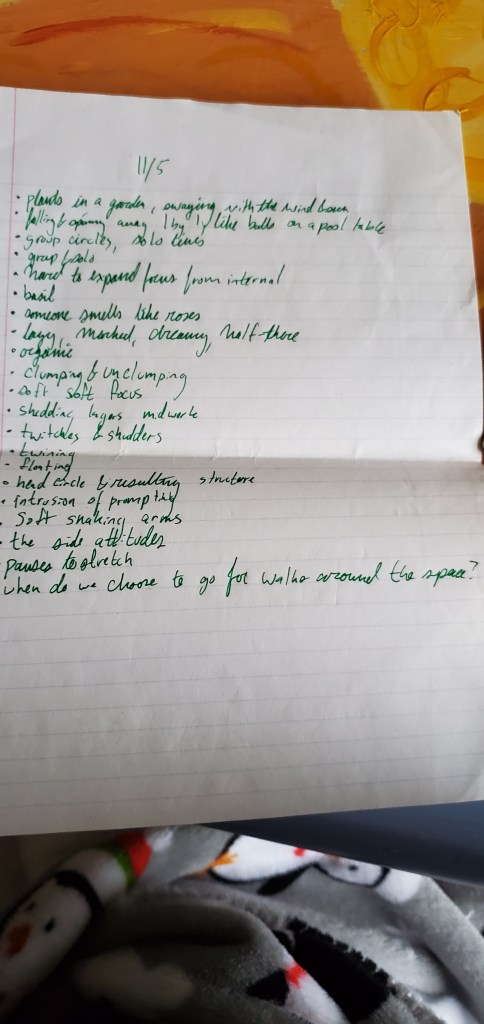 11/5
• plants in a garden, swaying with the wind
• falling & away 1 by 1, like balls on a pool table
• group circles, solo lines
• group & solo
• hard to expand focus from internal
• basil
• someone smells like roses
• lazy, dreamy, half-there
• organic
• clumping & unclumping
• soft soft focus
• shedding layers midwork
• twitches & shudders
• twining
• floating
• head circle & resulting structure
• intrusion of
• soft snaking arms
• the side attitudes
• pauses to stretch
when do we choose to go for walks around the space?